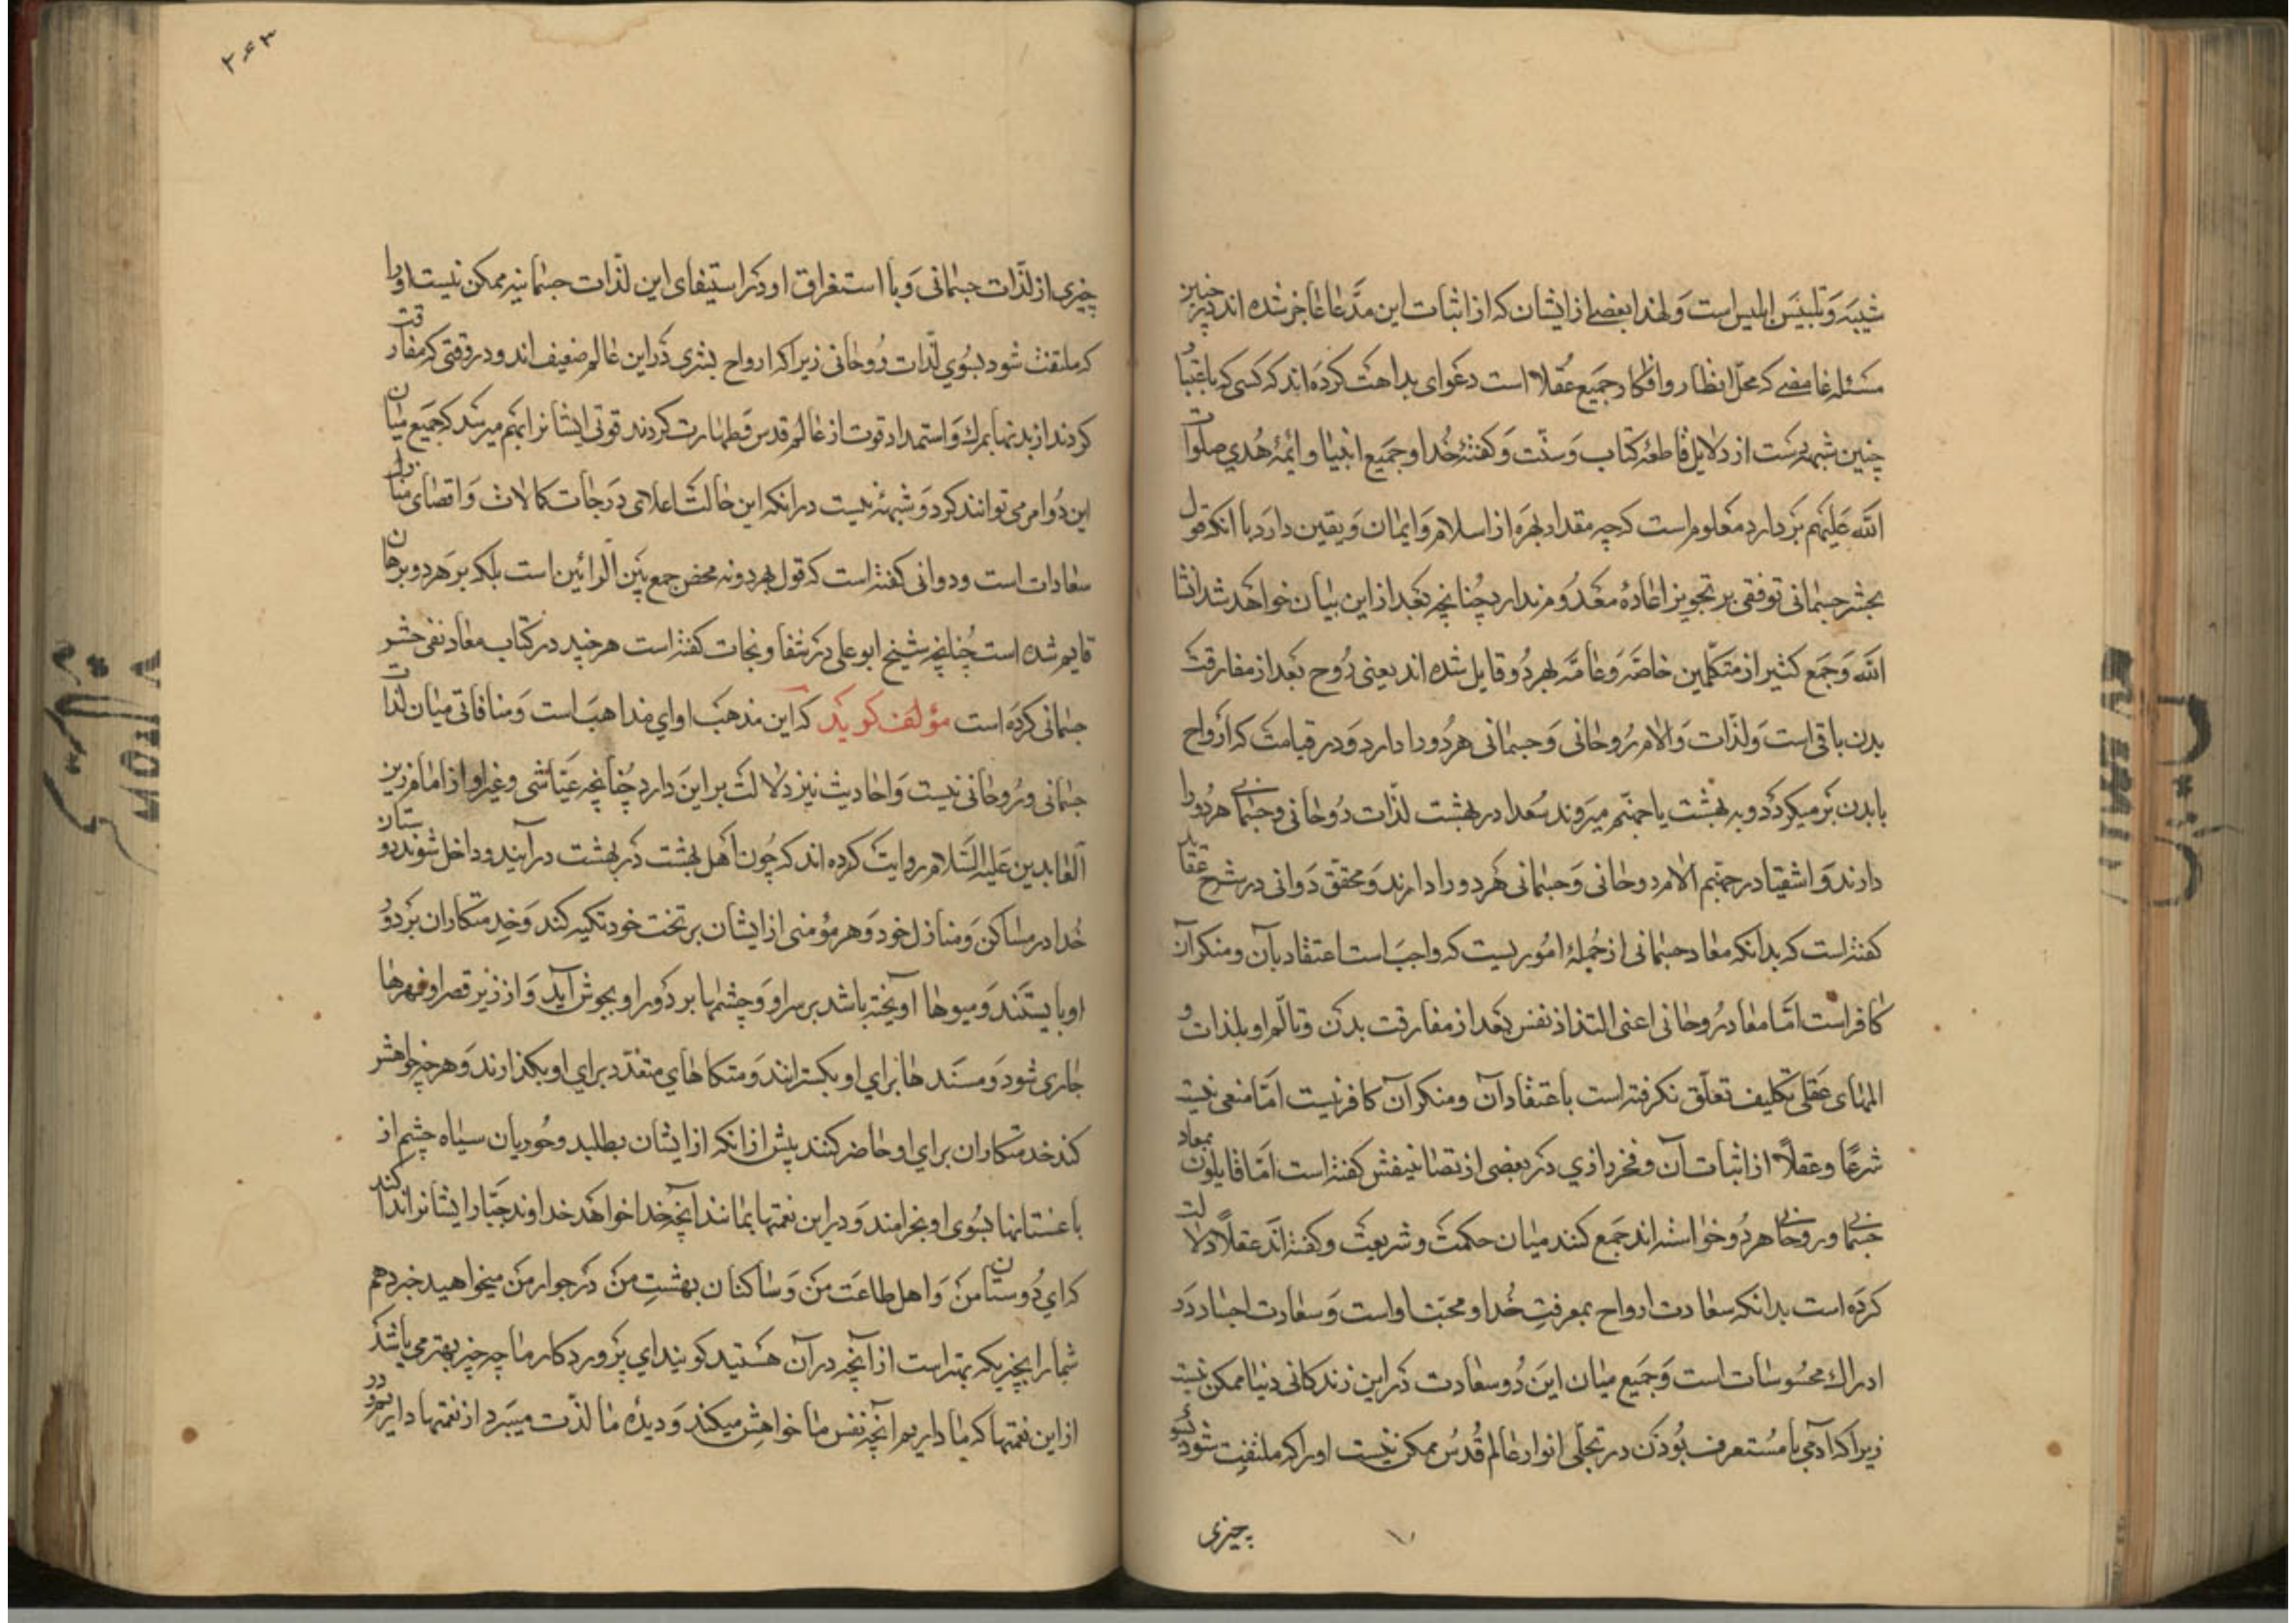 شبهه و تلبیس ابلیس است و لهذا بعضی از ایشان که از اثبات این مدّعا عاجز شده اند در چنین
مسئله غامضی که محلّ انظار و افکار جمیع عقلاء است دعوای بداهت کرده اند که کسی که باعتبار
چنین شبهه دست از دلایل قاطعهٔ کتاب و سنّت و گفتهٔ خدا و جمیع انبیا و ائمهٔ هُدی صلوات
الله علیهم بر دارد معلوم است که چه مقدار بهره از اسلام و ایمان و یقین دارد با آنکه قول
بحشر جسمانی توقفی بر تجویز اعادهٔ معدُوم ندارد چُنانچه بعد از این بیان خواهد شد انشا
الله و جمع کثیر از متکلّمین خاصّه و عامّه بهر دُو قایل شده اند یعنی رُوح بعد از مفارقت
بدن باقی است و لذّات و آلام رُوحانی و جسمانی هر دُو را دارد و در قیامت که ارواح
با بدن بر میگردد و به بهشت یا جهنّم میروند سُعدا در بهشت لذّات رُوحانی و جسمانی هر دُو را
دارند و اشقیا در جهنّم آلام روحانی و جسمانی هر دو را دارند و محقق دوانی در شرح عقاید
گفته است که بدانکه معاد جسمانی از جُملهٔ امُوریست که واجب است اعتقاد بآن و منکر آن
کافر است امّا معاد رُوحانی اعنی التذاذ نفس بعد از مفارقت بدن و تألّم او بلذات و
المهای عقلی تکلیف تعلّق نگرفته است باعتقاد آن و منکر آن کافر نیست امّا منعی نیست
شرعًا و عقلاً از اثبات آن و فخر رازی در بعضی از تصانیفش گفته است امّا قایلون بمعاد
جسمانی و روحانی هر دُو خواسته اند جمع کنند میان حکمت و شریعت و گفته اند عقلاً دلالت
کرده است بدانکه سعادت ارواح بمعرفتِ خُدا و محبّت اواست و سعادت اجساد در
ادراک محسُوسات است و جمیع میان این دُو سعادت در این زندکانی دنیا ممکن نیست
زیرا که آدمی با مُستغرف بُودن در تجلّی انوار عالم قُدس ممکن نیست او را که ملتفِت شود بسوی
چیزی
۲۶۳
چیزی از لذّات جسمانی و با استغراق او در استیفای این لذّات جسمانیه ممکن نیست او را
که ملتفت شود بسُوی لذّات رُوحانی زیرا که ارواح بشری در این عالم ضعیف اند و در وقتی که مفارقت
کردند از بدنها بمرک و استمداد قوت از عالم قدس و طهارت کردند قوتی ایشانرا بهم میرسد که جمیع میان
این دُو امر می توانند کرد و شبههٔ نیست در انکه این حالت اعلای درجات کمالات و اقصای منازل
سعادات است و دوانی گفته است که قول بهر دو نه محض جمع بین الرائین است بلکه بر هر دو برهان
قایم شده است چُنانچه شیخ ابو علی در شفا و نجات گفته است هر چند در کتاب معاد نفی حشر
جسمانی کرده است مؤلف کوید که این مذهب اوای مذاهب است و منافاتی میان لذات
جسمانی و رُوحانی نیست و احادیث نیز دلالت بر این دارد چُنانچه عیّاشی و غیر او از امام زین
العابدین علیه السّلام روایت کرده اند که چُون اهل بهشت در بهشت درآیند و داخل شوند دوستان
خُدا در مساکن و منازل خود و هر مؤمنی از ایشان بر تخت خود تکیه کند و خدمتکاران بر دور
او بایستند و میوها آویخته باشد بر سر او و چشمها بر دور او بجوش آید و از زیر قصر او نهرها
جاری شود و مسند ها برای او بکسترانند و متکاهای متعدّد برای او بکذارند و هر چه خواهش
کند خدمتکاران برای او حاضر کنند پیش از انکه از ایشان بطلبد و حُوریان سیاه چشم از
باغستانها بسُوی او بخرامند و در این نعمتها بمانند آنچه خدا خواهد خداوند جبّار ایشانرا ندا کند
که ای دُوستان من و اهل طاعت من و ساکنان بهشتِ من در جوار من میخواهید خبر دهم
شما را بچیزیکه بهتر است از آنچه در آن هستید کویند ای پروردکار ما چه چیز بهتر می باشد
از این نعمتها که ما داریم آنچه نفس ما خواهش میکند و دیدهٔ ما لذّت میبرد از نعمتها داریم در